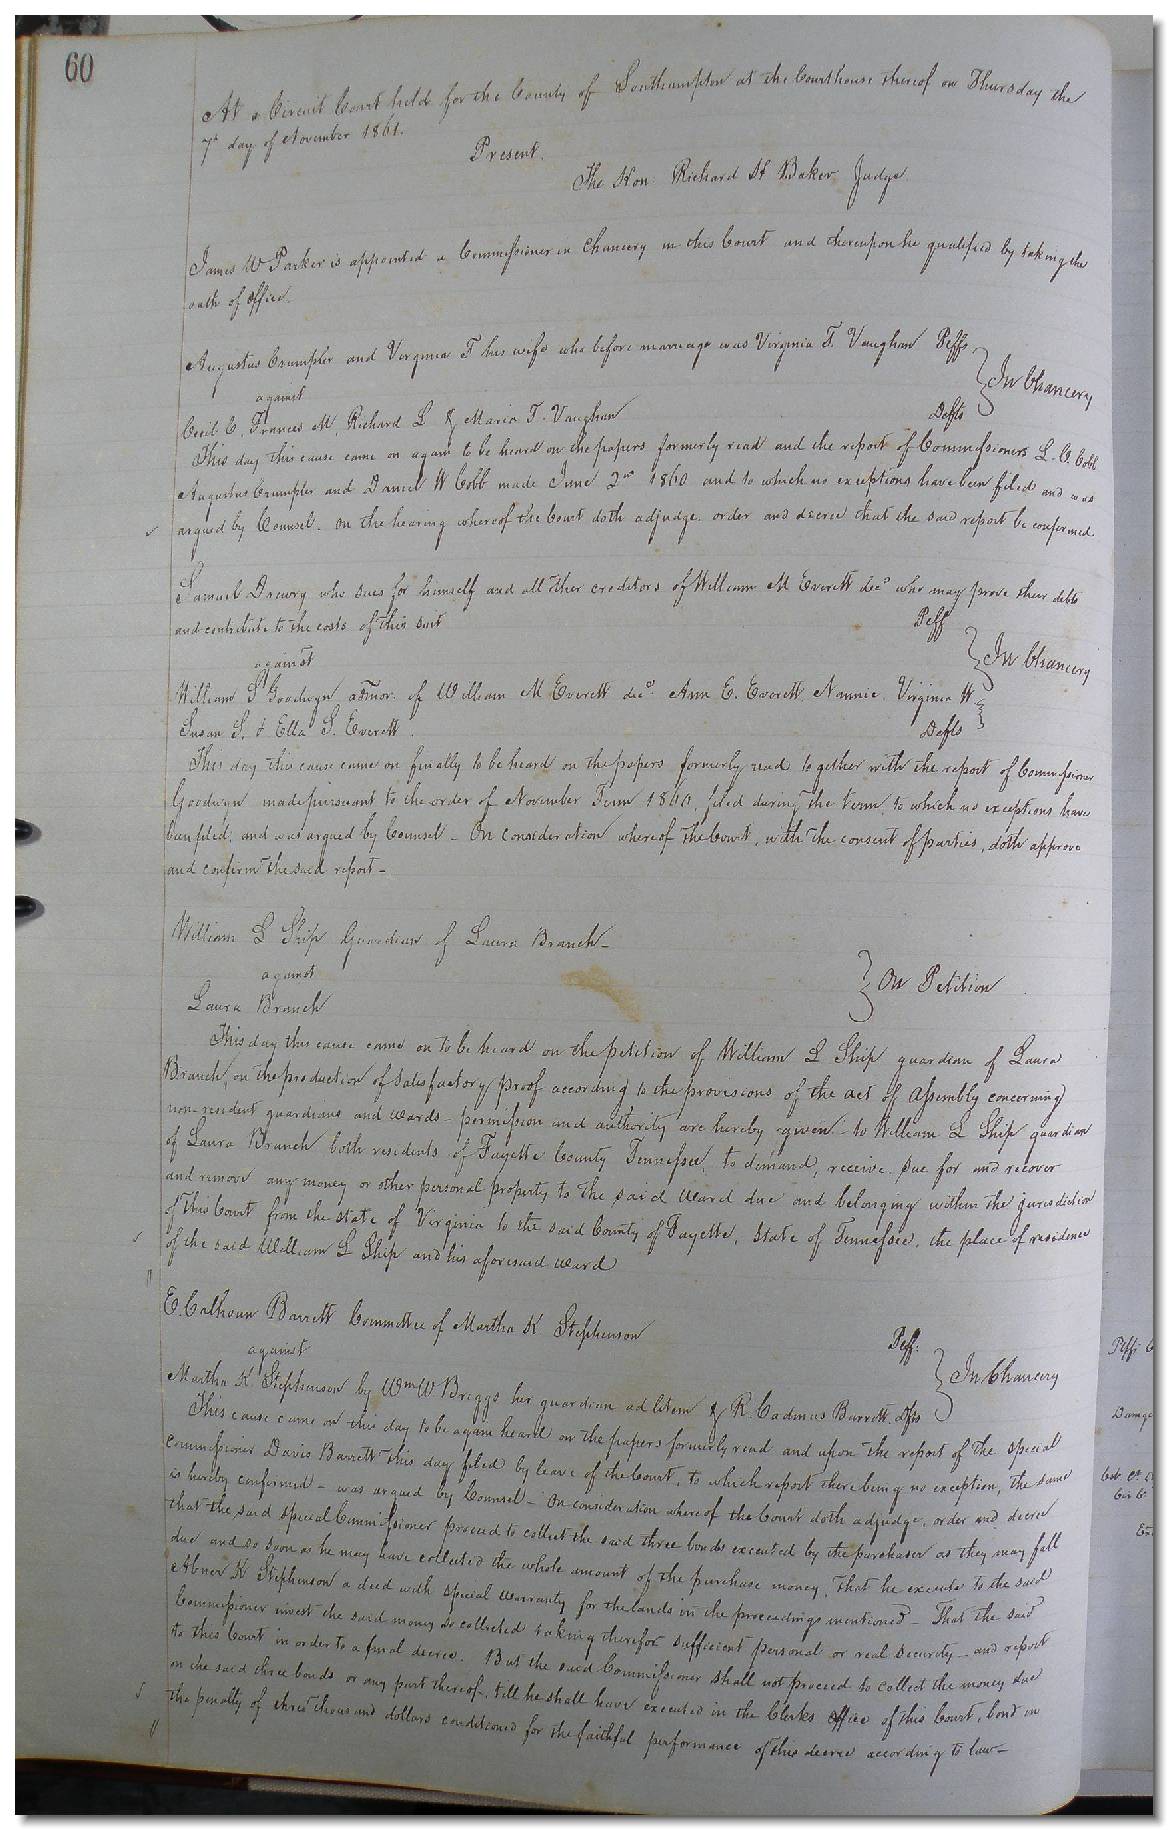 60
At a Circuit Court held for the County of Southampton at the Courthouse thereof on Thursday the
7th day of November 1861.
Present.
The Hon Richard H Baker Judge.
James W Parker is appointed a Commissioner in Chancery in this Court and thereupon he qualified by taking the
oath of office.
Augustus Crumpler and Virginia T his wife who before marriage was Virginia T. Vaughan Peffs
In Chancery
against
Cecil C, Frances M, Richard L & Maria T. Vaughan Defts
This day this cause came on again to be heard on the papers formerly read and the report of Commissioners L. O. Cobb
Augustus Crumpler and Daniel W Cobb made June 2nd 1860 and to which no exceptions have been filed and was
argued by Counsel. On the hearing whereof the Court doth adjudge order and decree that the said report be confirmed
Samuel Drewry who sues for himself and all other creditors of William M Everett decd who may prove their debts
and contribute to the costs of this suit Peff
In Chancery
against
William S Goodwyn admor. of William M Everett decd. Ann E. Everett Nannie Virginia W
Susan S. & Ella S. Everett. Defts
This day this cause came on finally to be heard on the papers formerly read together with the report of Commissioner
Goodwyn made pursuant to the order of November Term 1860, filed during the term, to which no exceptions have
been filed, and was argued by Counsel - On consideration whereof the Court, with the consent of parties, doth approve
and confirm the said report -
William L Ship Guardian of Laura Branch -
against
On Petition
Laura Branch
This day this cause came on to be heard on the petition of William L Ship guardian of Laura
Branch, on the production of satisfactory proof according to the provisions of the act of Assembly concerning
non-resident guardians and wards - permission and authority are hereby given to William L Ship guardian
of Laura Branch both residents of Fayette County Tennessee, to demand, receive sue for and recover
and remove any money or other personal property to the said ward due and belonging within the jurisdiction
of this Court from the state of Virginia to the said County of Fayette, State of Tennessee, the place of residence
of the said William L Ship and his aforesaid ward
E. Calhoun Barrett Committee of Martha K Stephenson Peff.
against
In Chancery
Martha K Stephenson by Wm W Briggs her guardian ad litem & R. Cadmus Barrett. dfts
This cause came on this day to be again heard on the papers formerly read and upon the report of the special
Commissioner Davis Barrett this day filed by leave of the Court, to which report there being no exception, the same
is hereby confirmed - was argued by Counsel - On consideration whereof the Court doth adjudge, order and decree
that the said special Commissioner proceed to collect the said three bonds executed by the purchaser as they may fall
due and so soon as he may have collected the whole amount of the purchase money, that he execute to the said
Abner K Stephenson a deed with special warranty for the lands in the proceedings mentioned - That the said
Commissioner invest the said money so collected taking therefor sufficient personal or real security - and report
to this Court in order to a final decree. But the said Commissioner shall not proceed to collect the money due
on the said three bonds or any part thereof, till he shall have executed in the Clerks office of this Court, bond in
the penalty of three thousand dollars conditioned for the faithful performance of this decree according to law -